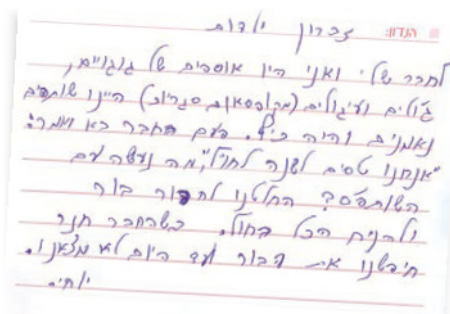 הנדון: זכרון ילדות
לחבר שלי ואני היו אוספים של גוגואים,
ג'ולים ועיגולים (מקופסאות סגריות) היינו שותפים
נאמנים והיה כיף. פעם החבר בא ואמר:
"אנחנו טסים לשנה לחו"ל", מה נעשה עם
השותפס? החלטנו לחפור בור
ולהניח הכל בחול. כשהחבר חזר
חיפשנו את הבור ועד היום לא מצאנו.